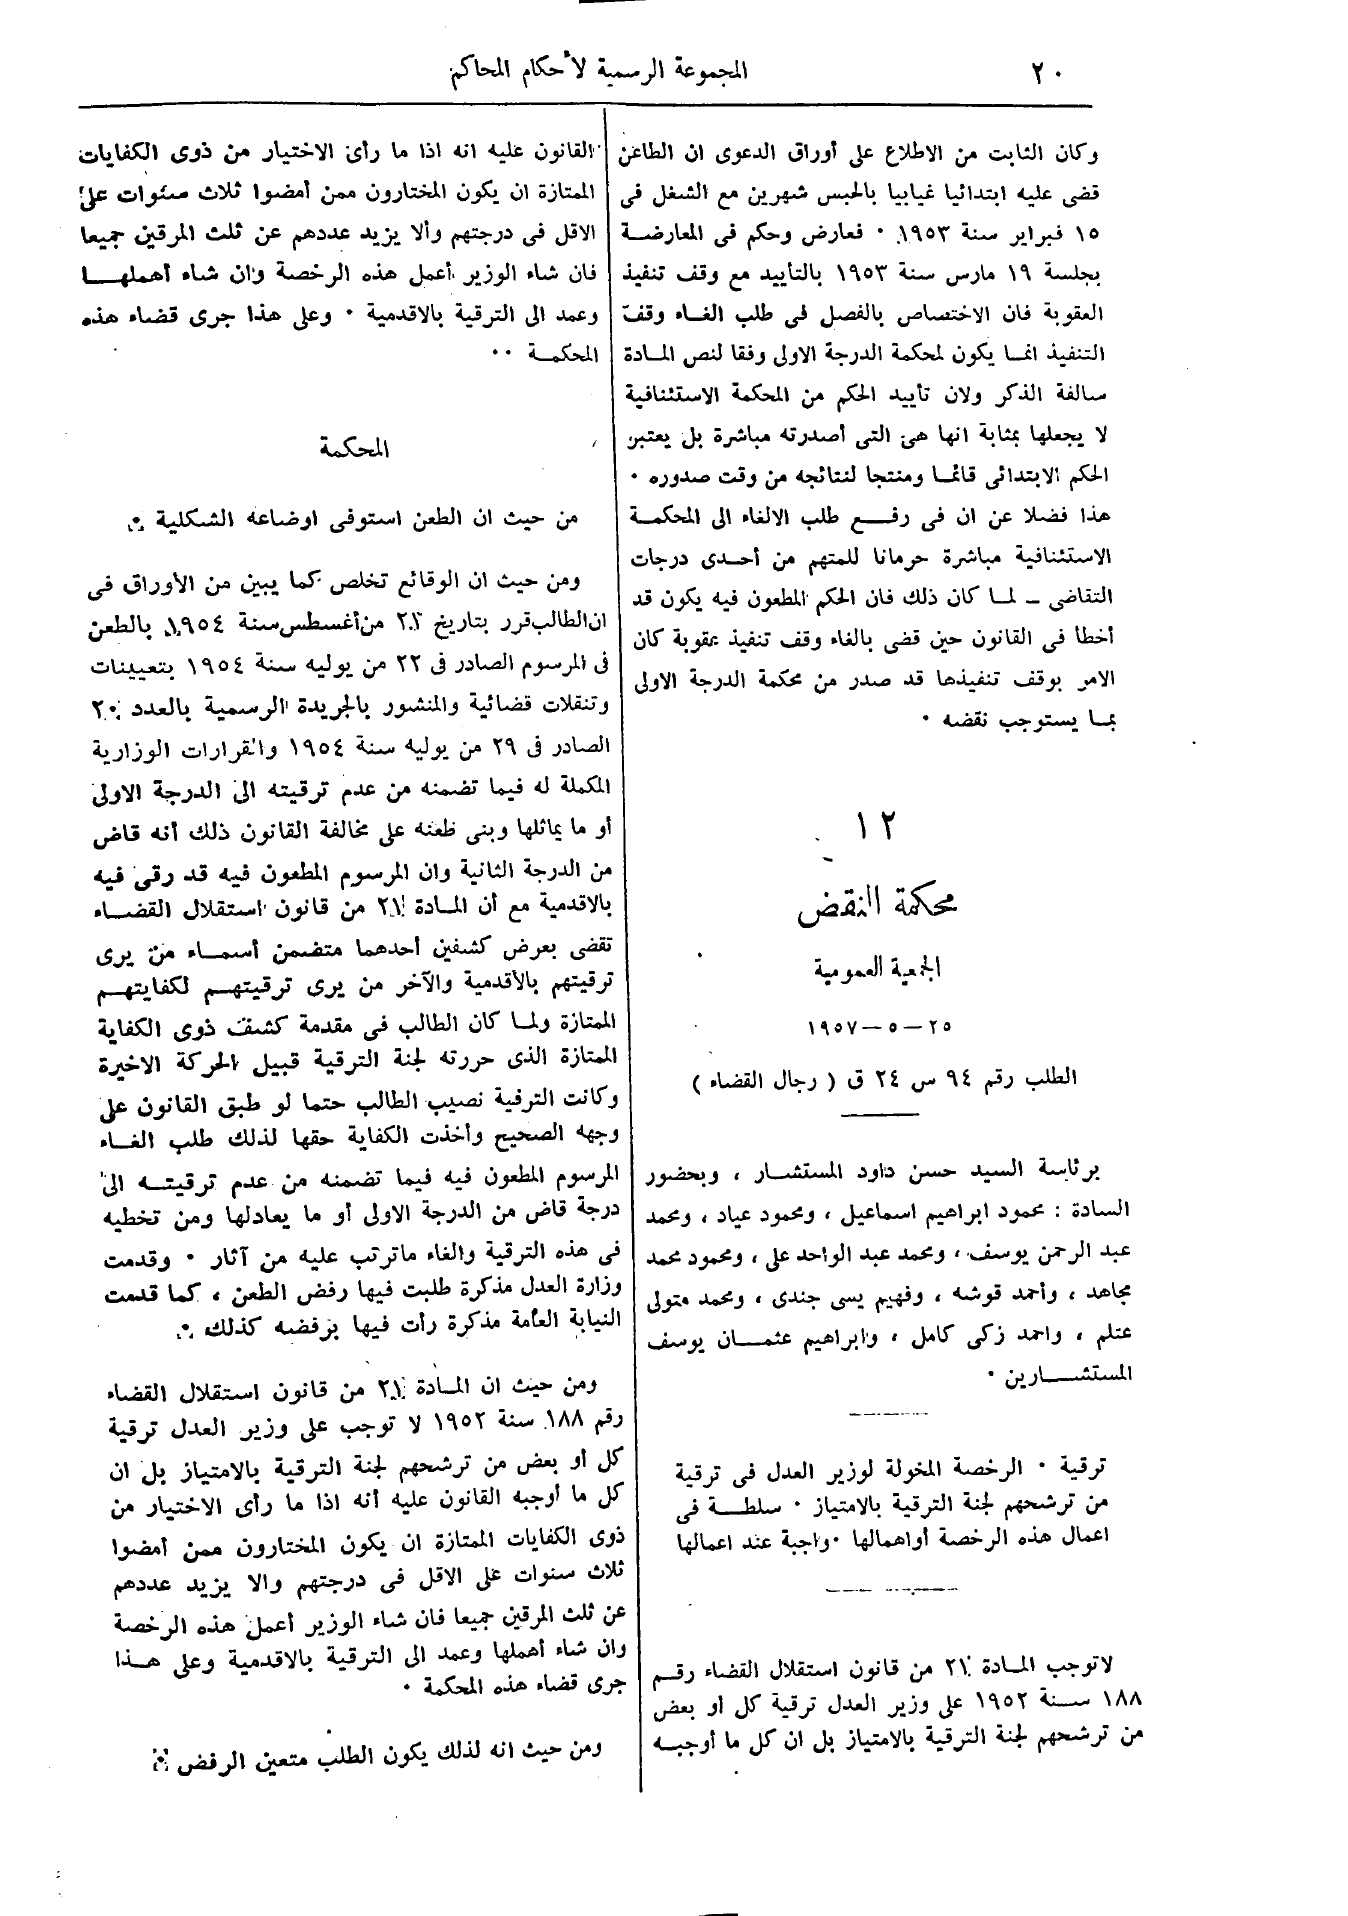 ٢٠
المجموعة الرسمية لأحكام المحاكم
وكان الثابت من الاطلاع على أوراق الدعوى ان الطاعن
قضى عليه ابتدائيا غيابيا بالحبس شهرين مع الشغل فى
١٥ فبراير سنة ١٩٥٣ ٠ فعارض وحكم فى المعارضة
بجلسة ١٩ مارس سنة ١٩٥٣ بالتأييد مع وقف تنفيذ
العقوبة فان الاختصاص بالفصل فى طلب الغاء وقف
التنفيذ انما يكون لمحكمة الدرجة الاولى وفقا لنص المادة
سالفة الذكر ولان تأييد الحكم من المحكمة الاستئنافية
لا يجعلها بمثابة انها هى التى أصدرته مباشرة بل يعتبر
الحكم الابتدائى قائما ومنتجا لنتائجه من وقت صدوره ٠
هذا فضلا عن ان فى رفع طلب الالغاء الى المحكمة
الاستئنافية مباشرة حرمانا للمتهم من أحدى درجات
التقاضى ـ لما كان ذلك فان الحكم المطعون فيه يكون قد
أخطأ فى القانون حين قضى بالغاء وقف تنفيذ عقوبة كان
الامر بوقف تنفيذها قد صدر من محكمة الدرجة الاولى
بما يستوجب نقضه ٠
١٢
محكمة النقض
الجمعية العمومية
٢٥ – ٥ – ١٩٥٧
الطلب رقم ٩٤ س ٢٤ ق ( رجال القضاء )
برئاسة السيد حسن داود المستشار ، وبحضور
السادة : محمود ابراهيم اسماعيل ، ومحمود عياد ، ومحمد
عبد الرحمن يوسف ، ومحمد عبد الواحد على ، ومحمود محمد
مجاهد ، وأحمد قوشه ، وفهيم يسى جندى ، ومحمد متولى
عتلم ، واحمد زكى كامل ، وابراهيم عثمان يوسف
المستشارين ٠
ترقية ٠ الرخصة المخولة لوزير العدل فى ترقية
من ترشحهم لجنة الترقية بالامتياز ٠ سلطة فى
اعمال هذه الرخصة أواهمالها ٠ واجبة عند اعمالها
لاتوجب المادة ٢١ من قانون استقلال القضاء رقم
١٨٨ سنة ١٩٥٢ على وزير العدل ترقية كل او بعض
من ترشحهم لجنة الترقية بالامتياز بل ان كل ما أوجبه
القانون عليه انه اذا ما رأى الاختيار من ذوى الكفايات
الممتازة ان يكون المختارون ممن أمضوا ثلاث سنوات على
الاقل فى درجتهم وألا يزيد عددهم عن ثلث المرقين جميعا
فان شاء الوزير أعمل هذه الرخصة وان شاء أهملها
وعمد الى الترقية بالاقدمية ٠ وعلى هذا جرى قضاء هذه
المحكمة ٠٠
المحكمة
من حيث ان الطعن استوفى اوضاعه الشكلية ٠
ومن حيث ان الوقائع تخلص كما يبين من الأوراق فى
ان الطالب قرر بتاريخ ٢١ من أغسطس سنة ١٩٥٤ بالطعن
فى المرسوم الصادر فى ٢٢ من يوليه سنة ١٩٥٤ بتعيينات
وتنقلات قضائية والمنشور بالجريدة الرسمية بالعدد ٢٠
الصادر فى ٢٩ من يوليه سنة ١٩٥٤ والقرارات الوزارية
المكملة له فيما تضمنه من عدم ترقيته الى الدرجة الاولى
أو ما يماثلها وبنى طعنه على مخالفة القانون ذلك أنه قاض
من الدرجة الثانية وان المرسوم المطعون فيه قد رقى فيه
بالاقدمية مع أن المادة ٢١ من قانون استقلال القضاء
تقضى بعرض كشفين أحدهما متضمن أسماء من يرى
ترقيتهم بالأقدمية والآخر من يرى ترقيتهم لكفايتهم
الممتازة ولما كان الطالب فى مقدمة كشف ذوى الكفاية
الممتازة الذى حررته لجنة الترقية قبيل الحركة الاخيرة
وكانت الترقية نصيب الطالب حتما لو طبق القانون على
وجهه الصحيح وأخذت الكفاية حقها لذلك طلب الغاء
المرسوم المطعون فيه فيما تضمنه من عدم ترقيته الى
درجة قاض من الدرجة الاولى أو ما يعادلها ومن تخطيه
فى هذه الترقية والغاء ماترتب عليه من آثار ٠ وقدمت
وزارة العدل مذكرة طلبت فيها رفض الطعن ، كما قدمت
النيابة العامة مذكرة رأت فيها برفضه كذلك ٠
ومن حيث ان المادة ٢١ من قانون استقلال القضاء
رقم ١٨٨ سنة ١٩٥٢ لا توجب على وزير العدل ترقية
كل أو بعض من ترشحهم لجنة الترقية بالامتياز بل ان
كل ما أوجبه القانون عليه أنه اذا ما رأى الاختيار من
ذوى الكفايات الممتازة ان يكون المختارون ممن أمضوا
ثلاث سنوات على الاقل فى درجتهم والا يزيد عددهم
عن ثلث المرقين جميعا فان شاء الوزير أعمل هذه الرخصة
وان شاء أهملها وعمد الى الترقية بالاقدمية وعلى هذا
جرى قضاء هذه المحكمة ٠
ومن حيث انه لذلك يكون الطلب متعين الرفض ٠